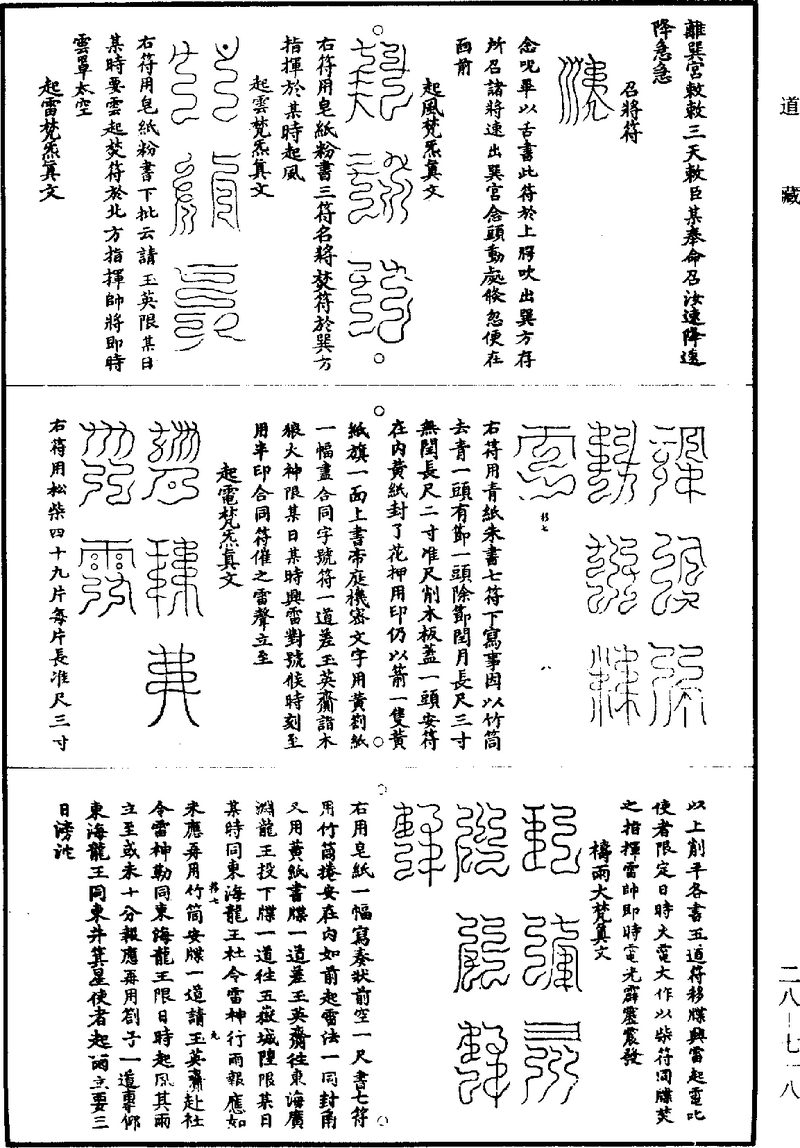 道藏
離巽宮敕敕三天敕臣某奉命召汝速降速
降急急
召將符
念呪畢以舌書此符於上腭吹出巽方存
所召諸將速出巽宮念頭動處倏忽便在
面前
起風梵炁真文
右符用皂紙粉書三符名將焚符於巽方
指揮於某時起風
起雲梵炁真文
右符用皂紙粉書下批云請玉英限某日
某時要雲起焚符於北方指揮帥將即時
雲罩太空
起雷梵炁真文
移七
八
右符用青紙朱書七符下寫事因以竹筒
去青一頭有節一頭除節閏月長尺三寸
無閏長尺二寸准尺削木板蓋一頭安符
在內黃紙封了花押用印仍以箭一隻黃
紙旗一面上書帝庭機密文字用黃劄紙
一幅畫合同字號符一道差玉英齎詣木
狼大神限某日某時興雷對號候時刻至
用半印合同符催之雷聲立至
起電梵炁真文
右符用松柴四十九片每片長准尺三寸
以上削平各書五道符移牒興雷起電叱
使者限定日時大電大作以柴符同牒焚
之指揮雷帥即時電光霹靂震發
禱雨大梵真文
右用皂紙一幅寫奏狀前空一尺書七符
用竹筒捲安在內如前起雷法一同封角
又用黃紙書牒一道差玉英齎往東海廣
淵龍王投下牒一道往五嶽城隍限某日
某時同東海龍王社令雷神行雨報應如
未應再用竹筒安牒一道請玉英齎赴社
令雷神勒同東海龍王限日時起風其雨
立至或未十分報應再用劄子一道專仰
東海龍王同東井箕星使者起雨立要三
日滂沱
移七
九
二八—七一八